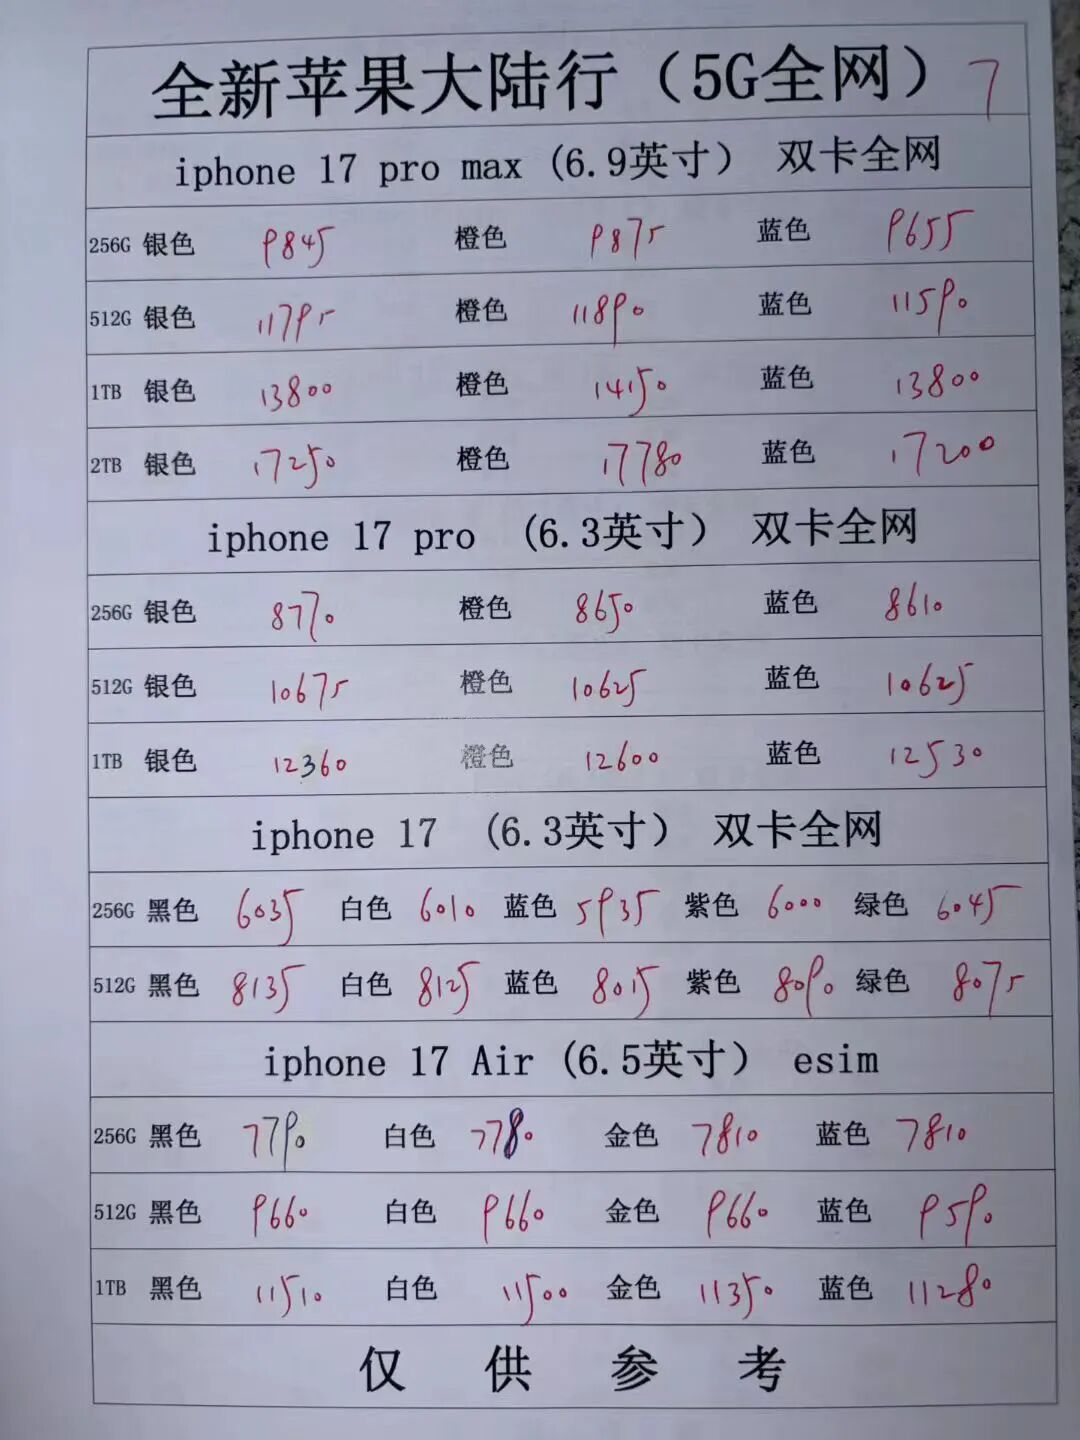 全新苹果大陆行（5G全网） 7
iphone 17 pro max (6.9英寸） 双卡全网
256G 银色 9845 橙色 9875 蓝色 9655
512G 银色 11795 橙色 11890 蓝色 11590
1TB 银色 13800 橙色 14150 蓝色 13800
2TB 银色 17250 橙色 17780 蓝色 17200
iphone 17 pro (6.3英寸） 双卡全网
256G 银色 8770 橙色 8650 蓝色 8610
512G 银色 10675 橙色 10625 蓝色 10625
1TB 银色 12360 橙色 12600 蓝色 12530
iphone 17 (6.3英寸） 双卡全网
256G 黑色 6035 白色 6010 蓝色 5935 紫色 6000 绿色 6045
512G 黑色 8135 白色 8125 蓝色 8015 紫色 8090 绿色 8075
iphone 17 Air (6.5英寸） esim
256G 黑色 7790 白色 7780 金色 7810 蓝色 7810
512G 黑色 9660 白色 9660 金色 9660 蓝色 9590
1TB 黑色 11510 白色 11500 金色 11350 蓝色 11280
仅供参考